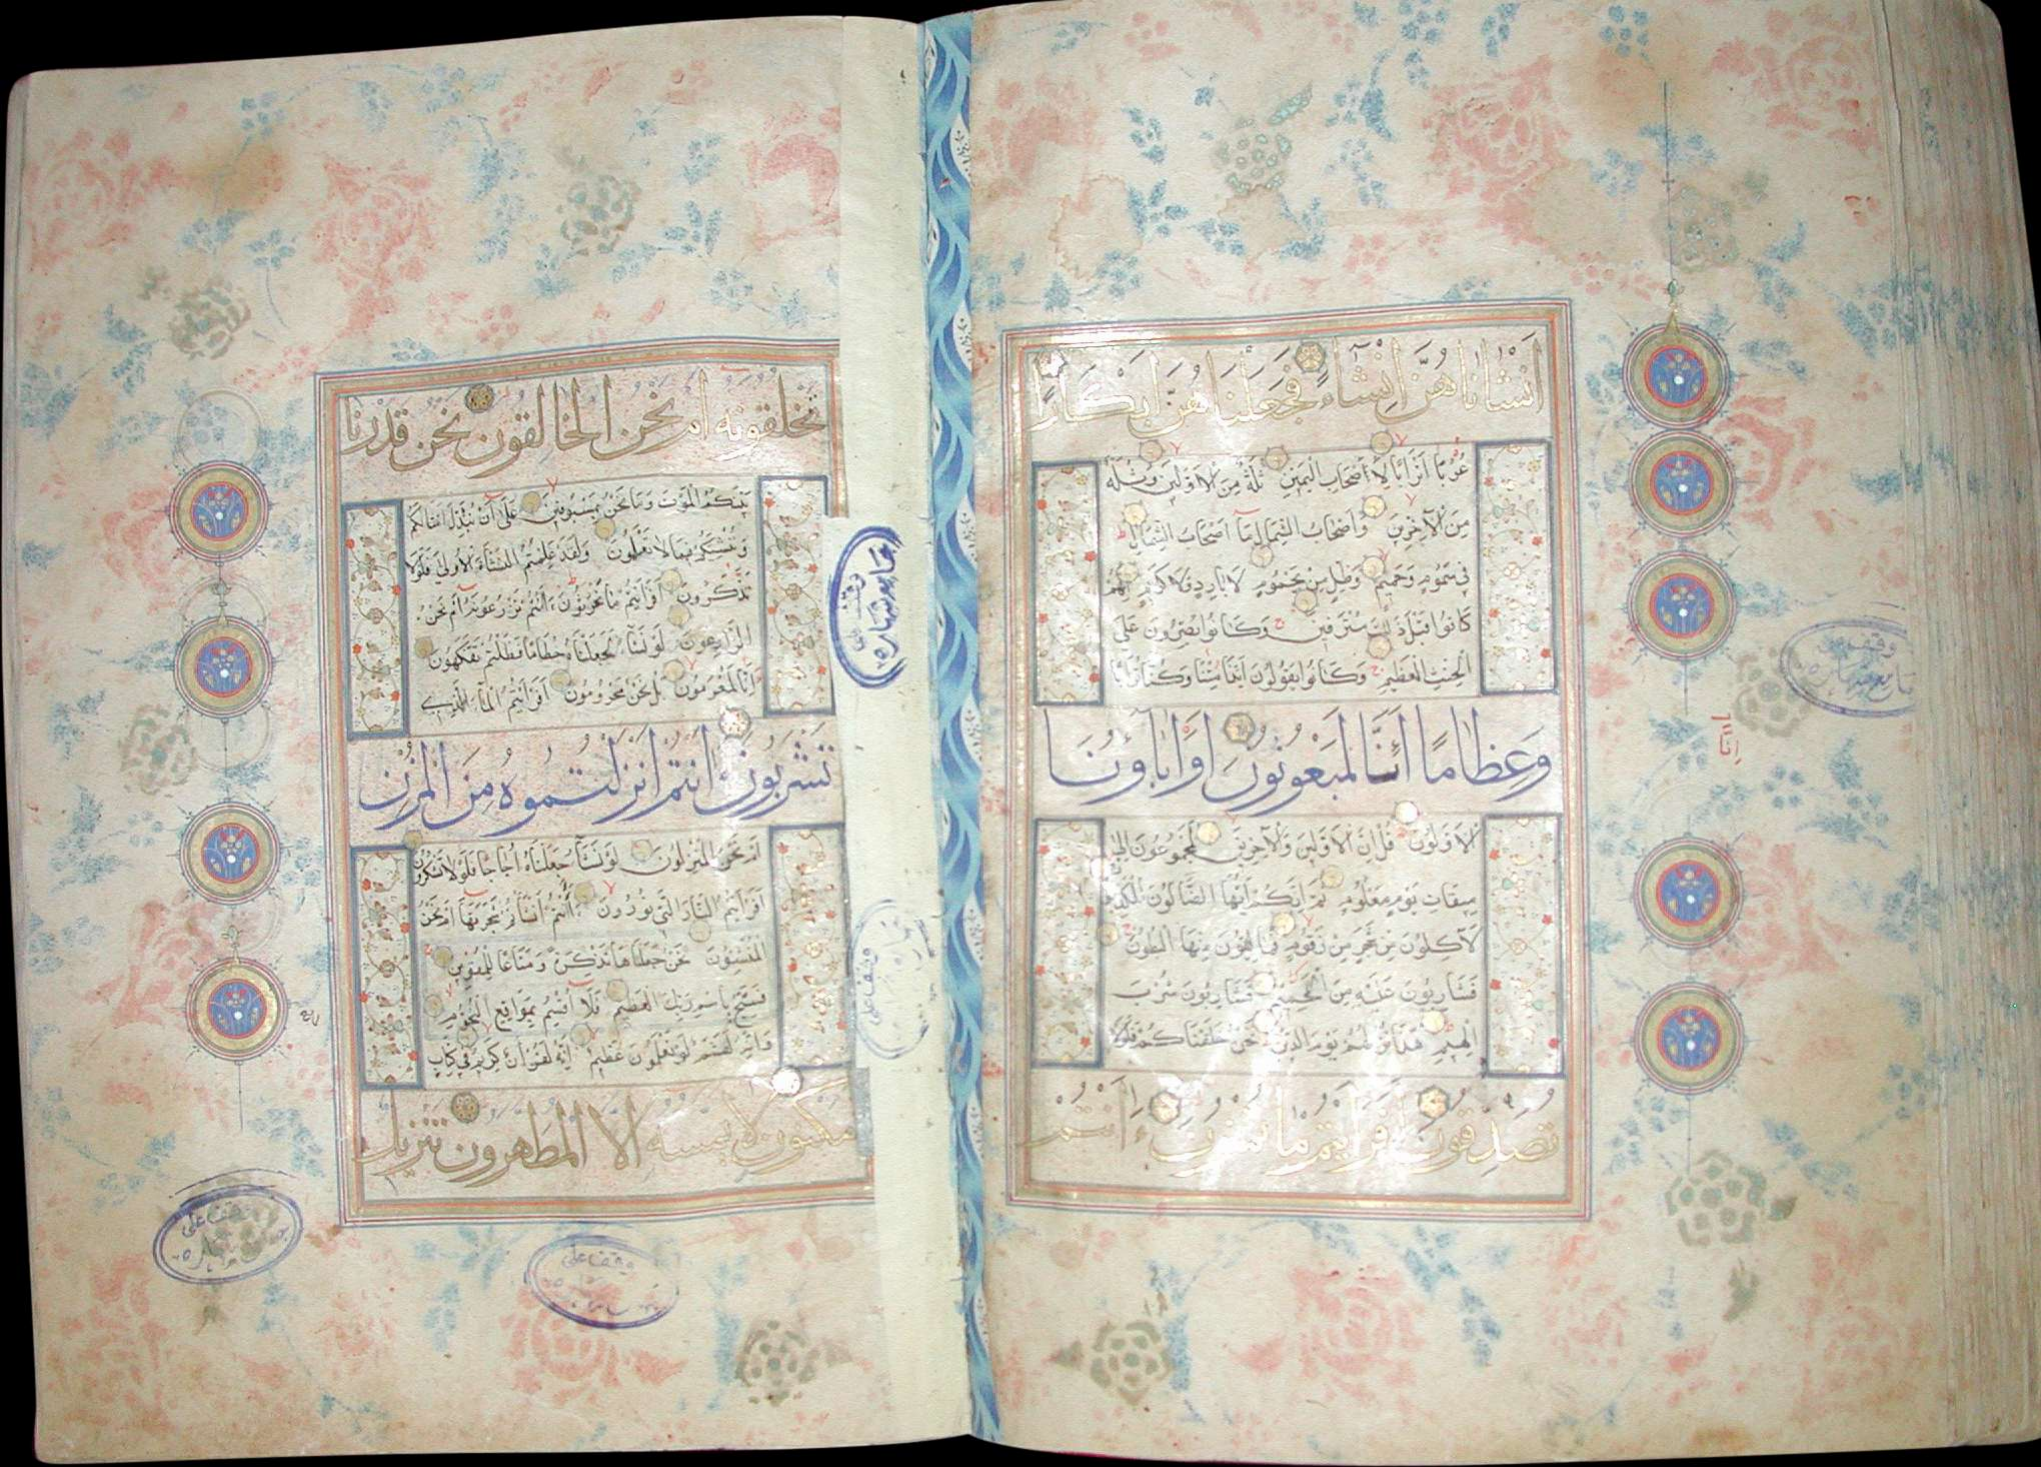 انشاناهن انشاء فجعلناهن ابكارا
عربا اترابا لاصحاب اليمين ثلة من الاولين وثلة
من الآخرين واصحاب الشمال ما اصحاب الشمال
في سموم وحميم وظل من يحموم لا بارد ولا كريم انهم
كانوا قبل ذلك مترفين وكانوا يصرون على
الحنث العظيم وكانوا يقولون ائذا متنا وكنا ترابا
وعظاما ائنا لمبعوثون اواباؤنا
الاولون قل ان الاولين والآخرين لمجموعون الى
ميقات يوم معلوم ثم انكم ايها الضالون المكذبون
لآكلون من شجر من زقوم فمالؤن منها البطون
فشاربون عليه من الحميم فشاربون شرب
الهيم هذا نزلهم يوم الدين نحن خلقناكم فلولا
تصدقون افرايتم ما تمنون ءانتم
تخلقونه ام نحن الخالقون نحن قدرنا
بينكم الموت وما نحن بمسبوقين على ان نبدل امثالكم
وننشئكم فيما لا تعلمون ولقد علمتم النشاة الاولى فلولا
تذكرون افرايتم ما تحرثون ءانتم تزرعونه ام نحن
الزارعون لو نشاء لجعلناه حطاما فظلتم تفكهون
انا لمغرمون بل نحن محرومون افرايتم الماء الذي
تشربون ءانتم انزلتموه من المزن
ام نحن المنزلون لو نشاء جعلناه اجاجا فلولا تشكرون
افرايتم النار التي تورون ءانتم انشاتم شجرتها ام نحن
المنشؤن نحن جعلناها تذكرة ومتاعا للمقوين
فسبح باسم ربك العظيم فلا اقسم بمواقع النجوم
وانه لقسم لو تعلمون عظيم انه لقرآن كريم في كتاب
مكنون لا يمسه الا المطهرون تنزيل
وقف على
وقف على
وقف على